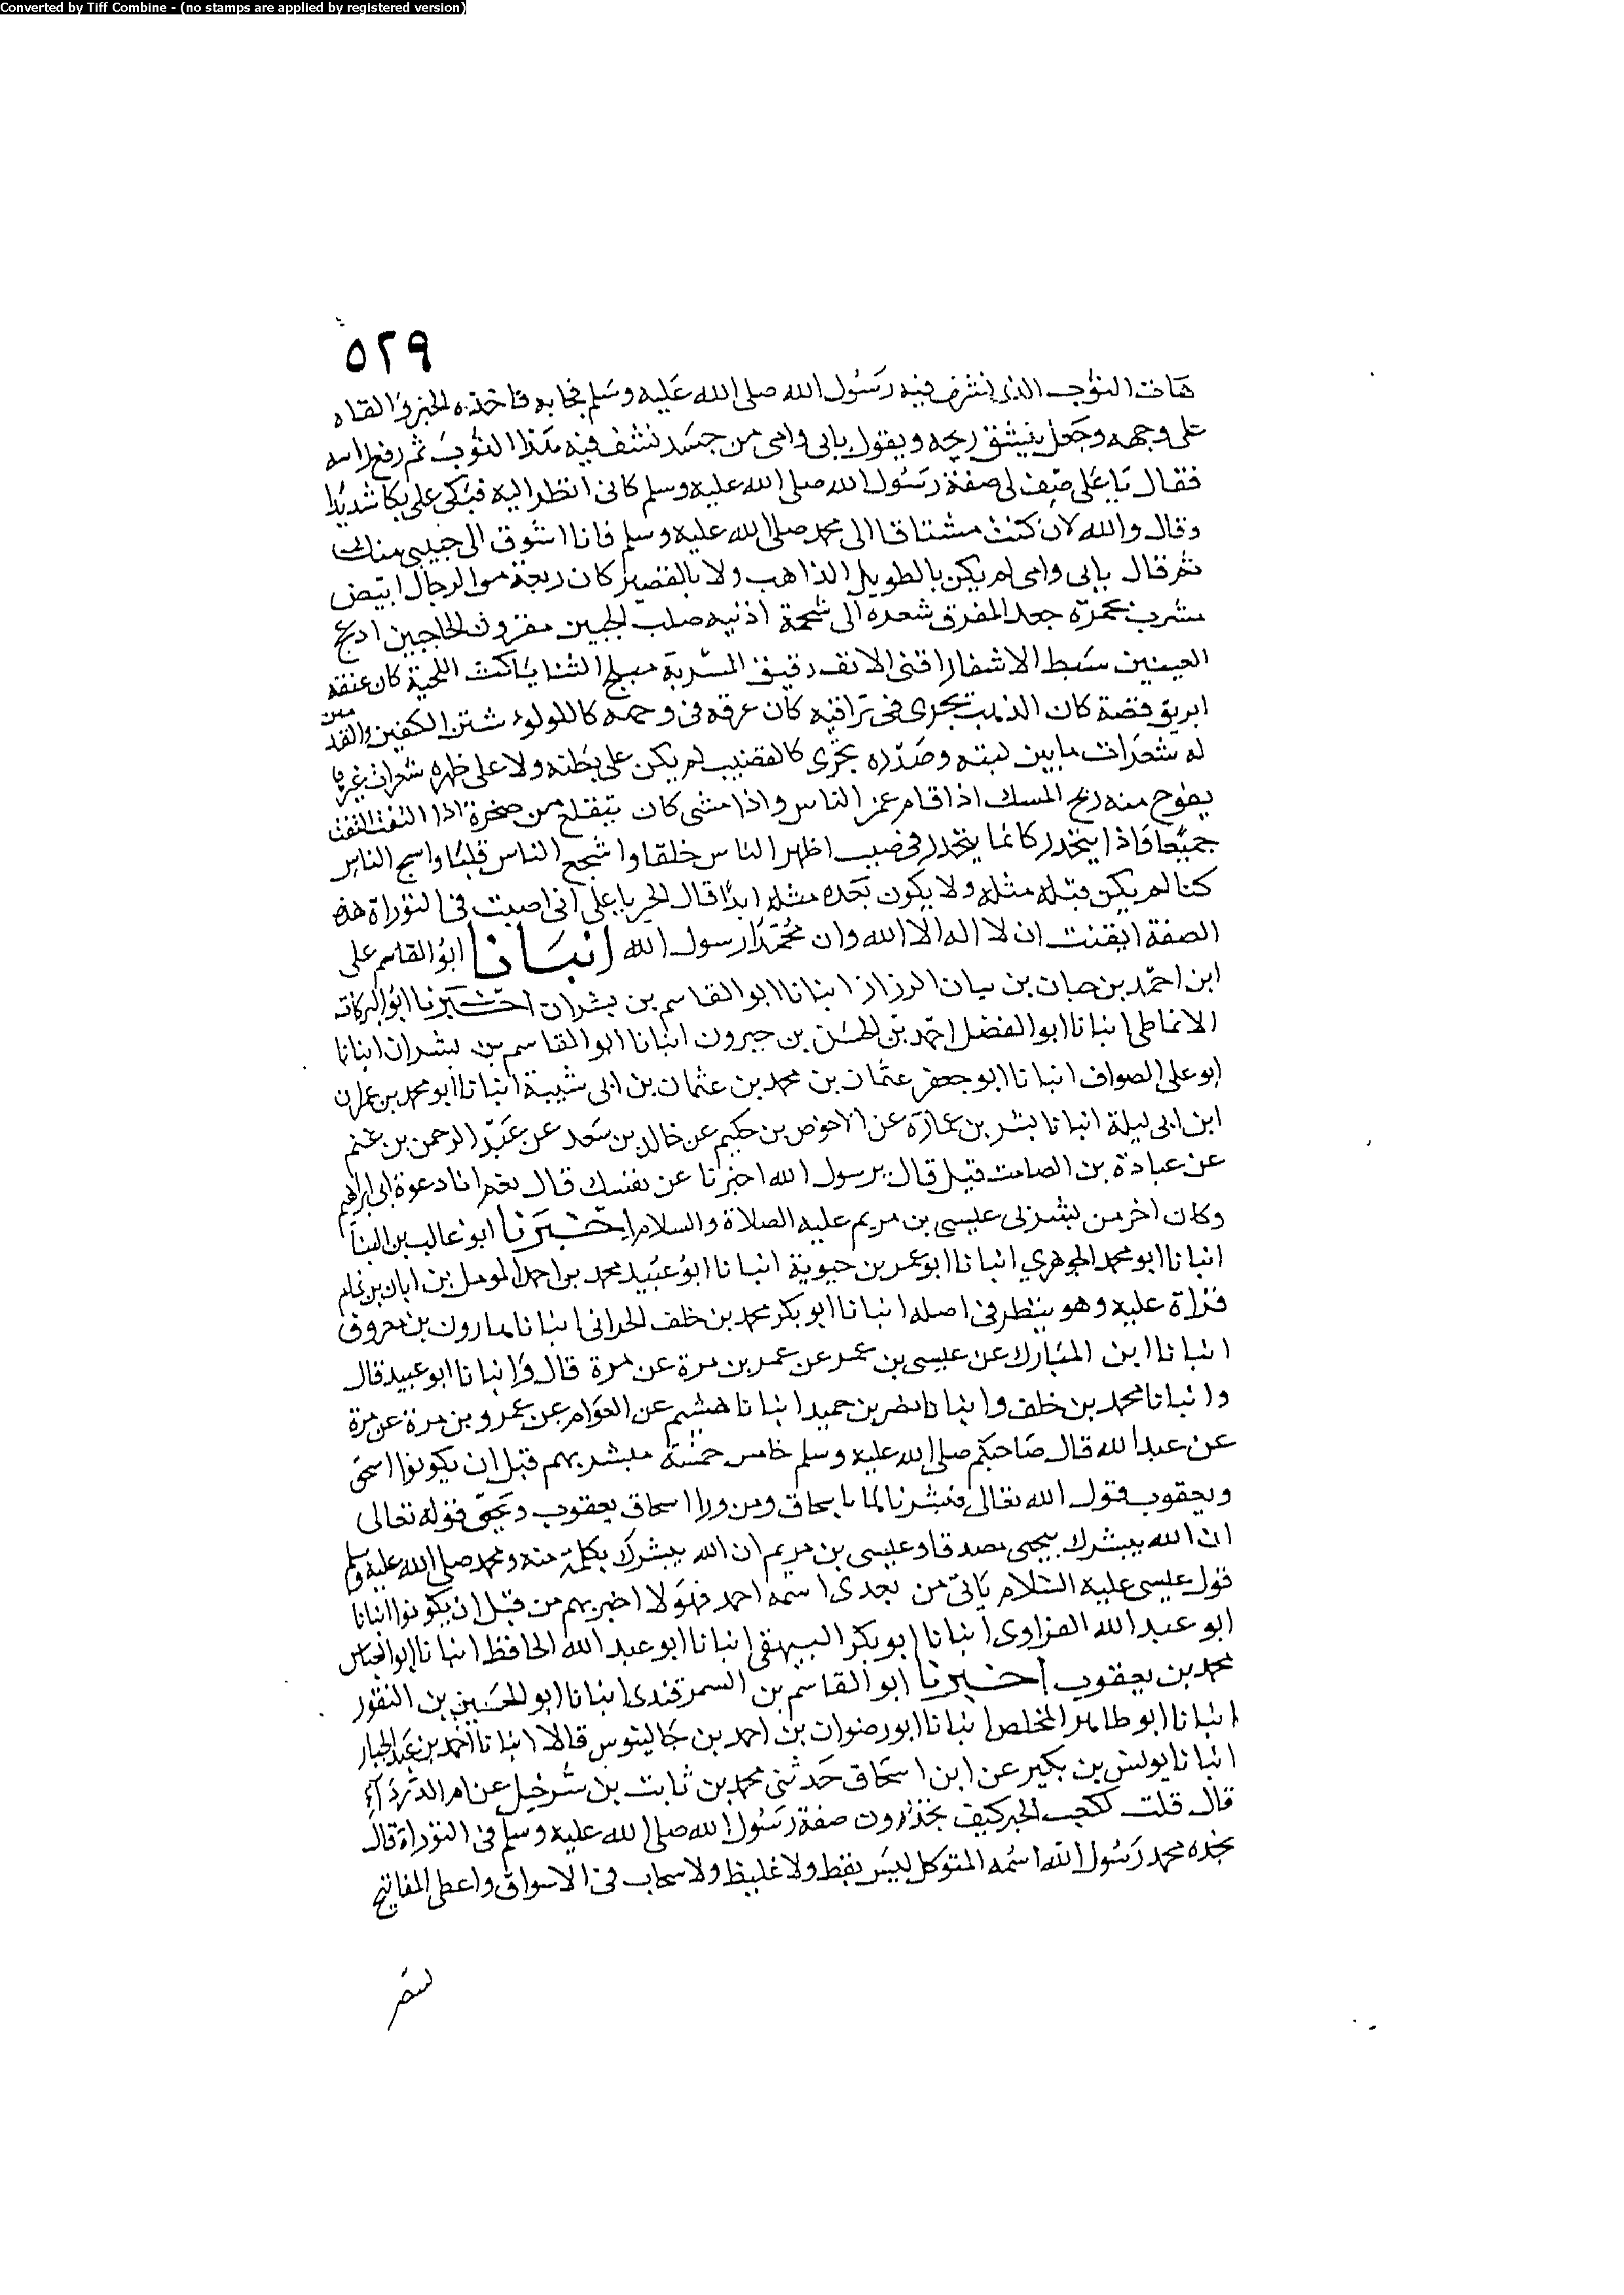 Converted by Tiff Combine - (no stamps are applied by registered version)
٥٢٩
هات الثوب الذي نشف فيه رسول الله صلى الله عليه وسلم فجا به فاخذه الحبر والقاه
على وجهه وجعل ينشق ريحه ويقول بابي وامي من جسد نشف فيه هذا الثوب ثم رفع راسه
فقال يا على صف لى صفة رسول الله صلى الله عليه وسلم كانى انظر اليه فبكى على بكا شديدا
وقال والله لان كنت مشتاقا الى محمد صلى الله عليه وسلم فانا اشوق الى حبيبى منك
ثم قال بابى وامى لم يكن بالطويل الذاهب ولا بالقصير كان ربعة من الرجال ابيض
مشرب بحمرة جعد المفرق شعره الى شحمة اذنيه صلب الجبين مقرون الحاجبين ادعج
العينين سبط الاشفار اقنى الانف دقيق المسربة مبلج الثنايا كث اللحية كان عنقه
ابريق فضة كان الذهب يجرى فى تراقيه كان عرقه فى وجهه كاللولوء شثن الكفين والقدمين
له شعرات ما بين لبته وصدره تجرى كالقضيب لم يكن على بطنه ولا على ظهره شعرات غيرها
يفوح منه ريح المسك اذا قام غمر الناس واذا مشى كان يتقلع من صخرة اذا التفت التفت
جميعا فاذا ينحدر كانما ينحدر فى صبب اظهر الناس خلقا واشجع الناس قلبا واسمح الناس
كفا لم يكن قبله مثله ولا يكون بعده مثله ابدا قال الحبر يا على انى اصبت فى التوراة هذه
الصفة ايقنت ان لا اله الا الله وان محمدا رسول الله انبانا ابو القاسم على
ابن احمد بن بيان الرزاز انبانا ابو القاسم بن بشران اخبرنا ابو البركات
الانماطى انبانا ابو الفضل احمد بن الحسن بن خيرون انبانا ابو القاسم بن بشران انبانا
ابو على الصواف انبانا ابو جعفر عثمان بن محمد بن عثمان بن ابى شيبة انبانا ابو محمد بن عمران
ابن ابى ليلة انبانا بشر بن عمارة عن الاحوص بن حكيم عن خالد بن سعد عن عبد الرحمن بن غنم
عن عبادة بن الصامت قيل قال يرسول الله اخبرنا عن نفسك قال نعم انا دعوة ابى ابراهيم
وكان اخر من بشر لى عيسى بن مريم عليه الصلاة والسلام اخبرنا ابو غالب بن البنا
انبانا ابو محمد الجوهري انبانا ابو عمر بن حيوية انبانا ابو عبيد محمد بن احمد المومل بن ابان بن
قراة عليه وهو ينظر فى اصله انبانا ابو بكر محمد بن خلف الحدانى انبانا هارون بن معروف
انبانا ابن المبارك عن عيسى بن عمر عن عمر بن مرة عن مرة قال وانبانا ابو عبيد قال
وانبانا محمد بن خلف وانبانا نصر بن حميد انبانا هشيم عن العوام عن عمرو بن مرة عن مرة
عن عبد الله قال صاحبكم صلى الله عليه وسلم خامس خمسة مبشر بهم قبل ان يكونوا اسحق
ويعقوب قول الله تعالى فبشرناها باسحاق ومن ورا اسحاق يعقوب ويحيى قوله تعالى
ان الله يبشرك بيحيى مصدقا وعيسى بن مريم ان الله يبشرك بكلمة منه ومحمد صلى الله عليه وسلم
قول عيسى عليه السلام ياتى من بعدى اسمه احمد فهولا اخبر بهم من قبل ان يكونوا انبانا
ابو عبد الله الفراوى انبانا ابو بكر البيهقى انبانا ابو عبد الله الحافظ انبانا ابو العباس
محمد بن يعقوب اخبرنا ابو القاسم بن السمرقندى انبانا ابو الحسين بن النقور
انبانا ابو طاهر المخلص انبانا ابو رضوان بن احمد بن جالينوس قالا انبانا احمد بن عبد الجبار
انبانا يونس بن بكير عن ابن اسحاق حدثنى محمد بن ثابت بن شرحبيل عن ام الدرداء
قال قلت لكعب الحبر كيف تجدون صفة رسول الله صلى الله عليه وسلم فى التوراة قال
نجده محمد رسول الله اسمه المتوكل ليس بفظ ولا غليظ ولا سخاب فى الاسواق واعطى المفاتيح